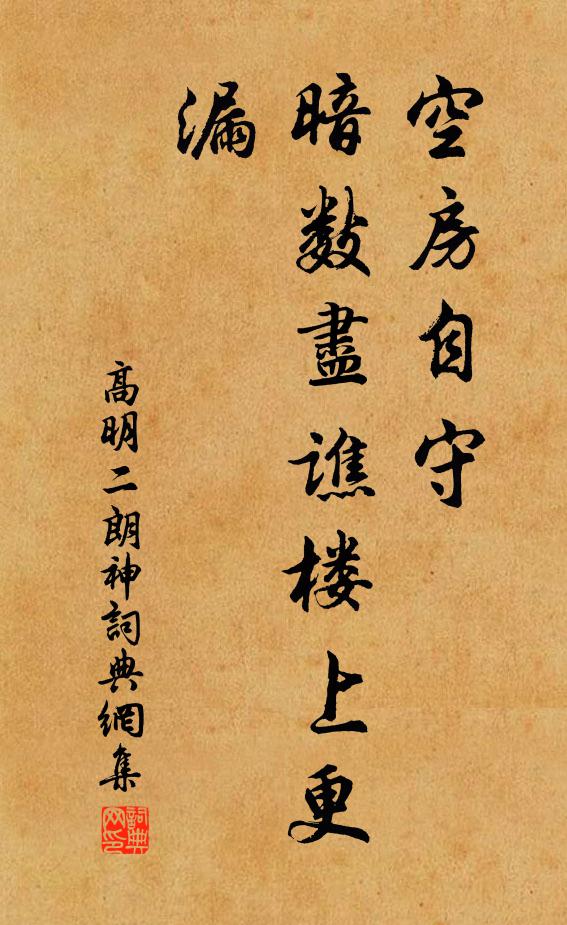 空房自守
暗数盡谯楼上更
漏
高明二朗神詞典網集
詞典网印